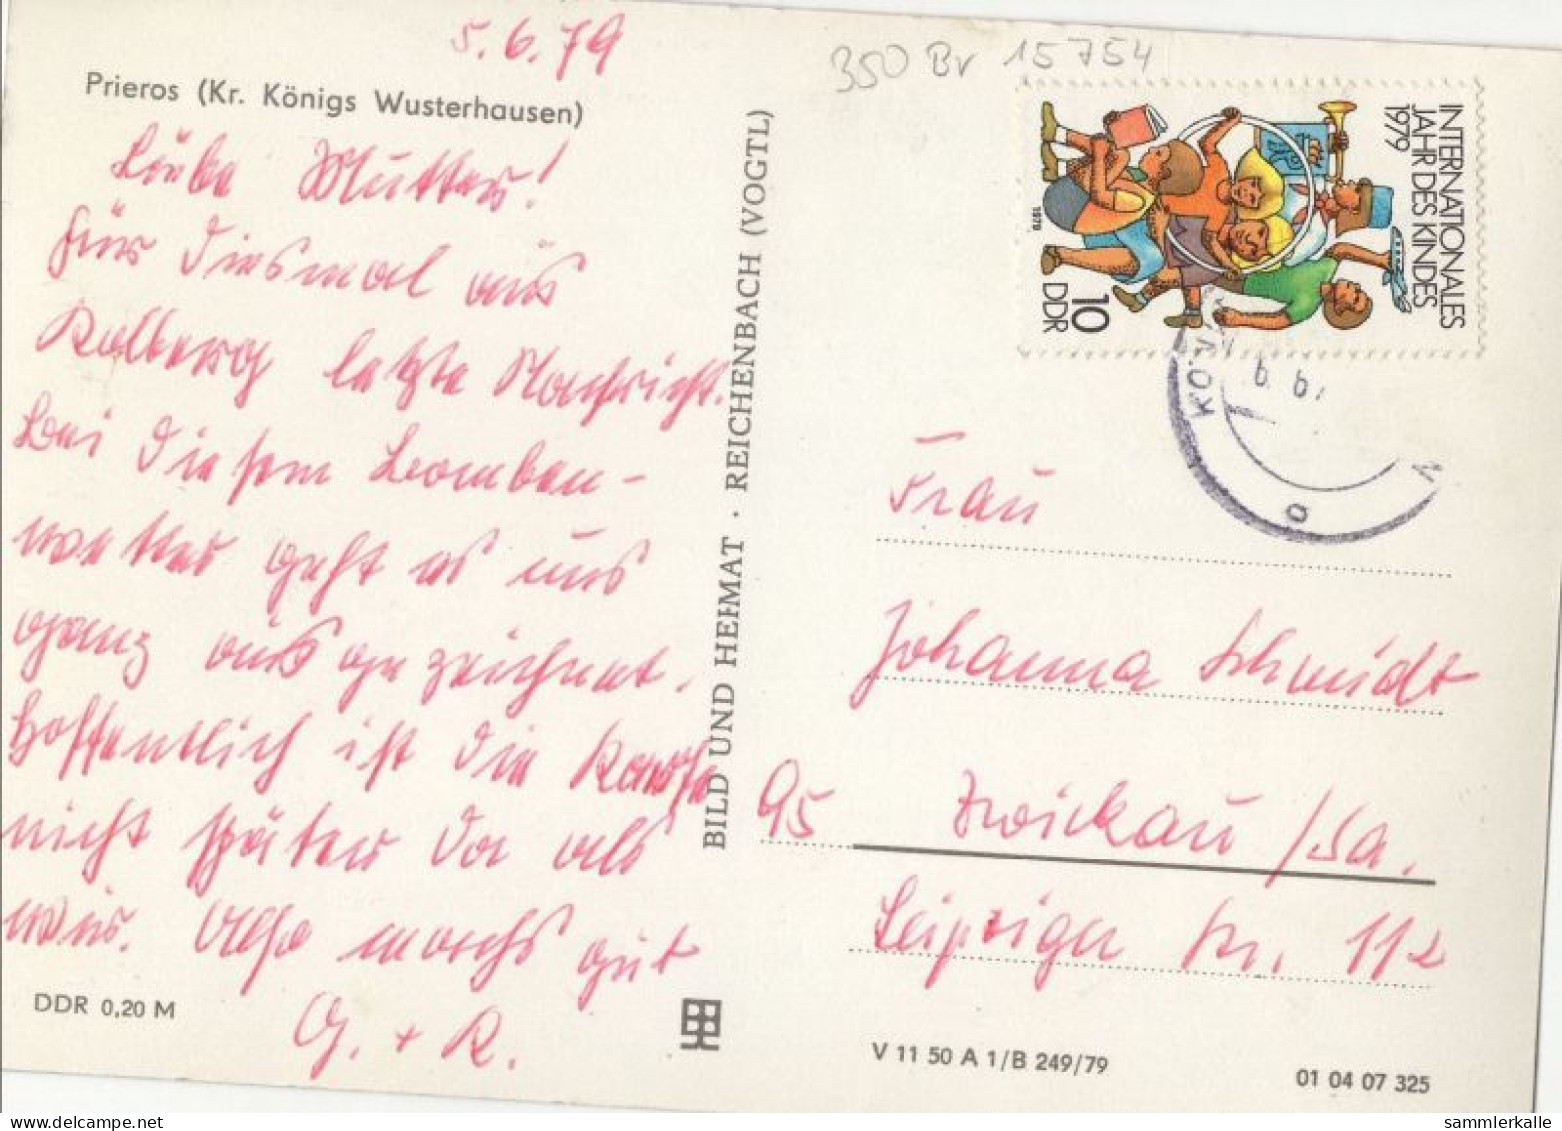 5.6.79
350 Br 15754
Prieros (Kr. Königs Wusterhausen)
Liebe Mutter!
Für diesmal aus
Kolberg letzte Nachricht.
Bei diesem Bomben-
wetter geht es uns
ganz ausgezeichnet.
Hoffentlich ist die Karte
nicht später da als
wir. Also machs gut
G. + R.
DDR 0,20 M
BILD UND HEIMAT · REICHENBACH (VOGTL)
INTERNATIONALES
JAHR DES KINDES
1979
1979
10
DDR
Frau
Johanna Schmidt
95 Zwickau/Sa.
Leipziger Str. 112
V 11 50 A 1/B 249/79
01 04 07 325
sammlerkalle